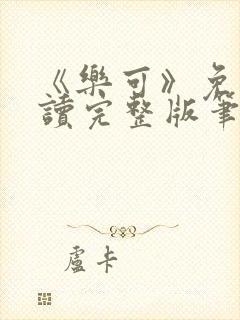 《樂可》免
讀完整版筆
盧卡